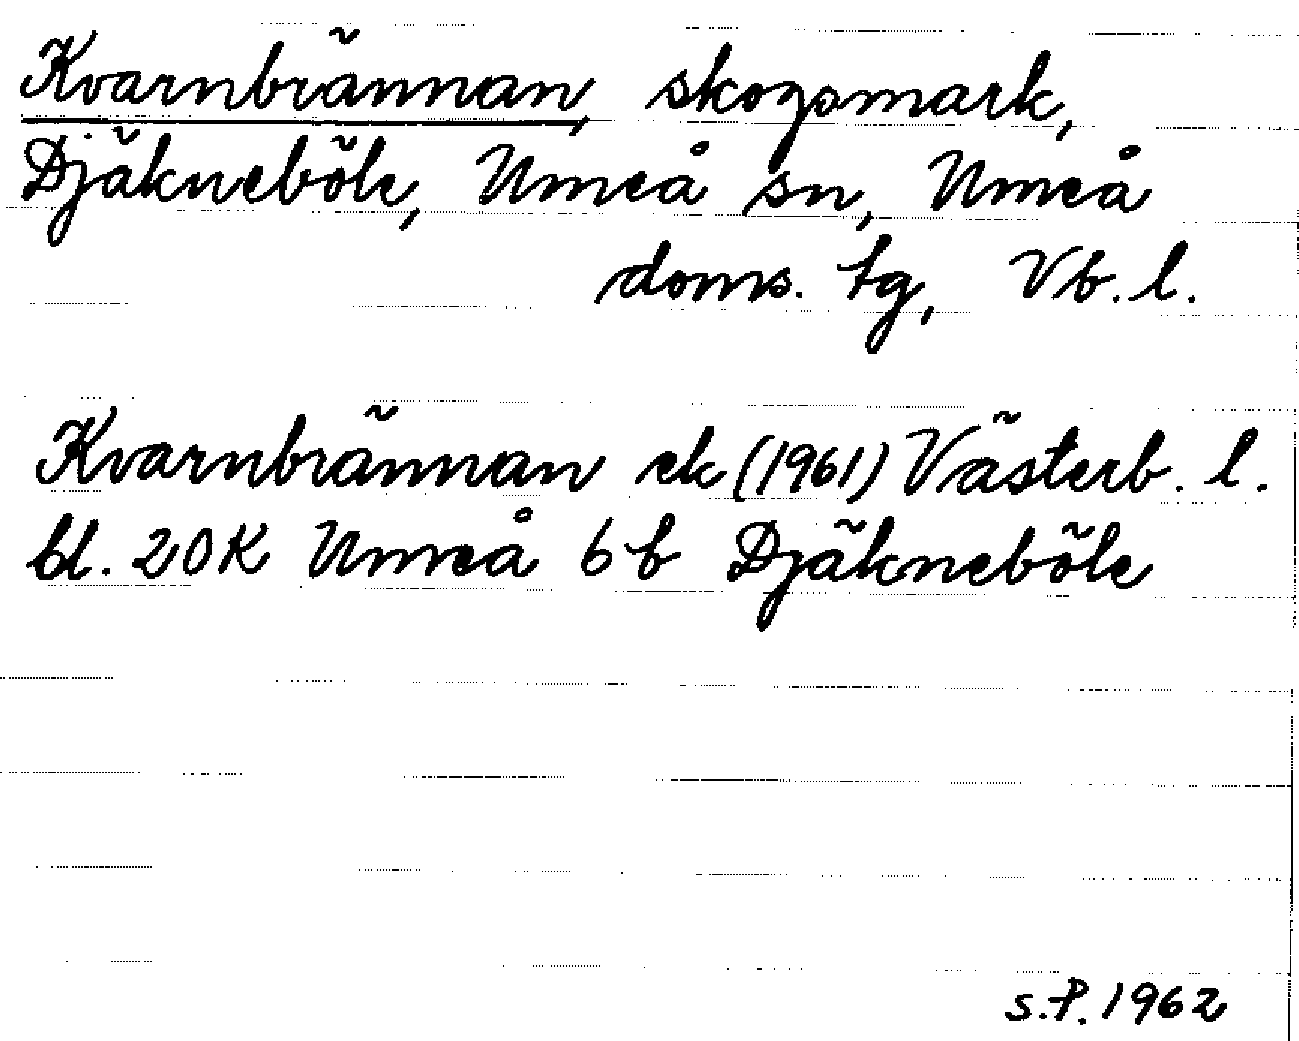 Kvarnbrännan, skogsmark,
Djäkneböle, Umeå sn, Umeå
doms. tg, Vb. l.
Kvarnbrännan ek (1961) Västerb. l.
bl. 20K Umeå 6b Djäkneböle
S.P. 1962